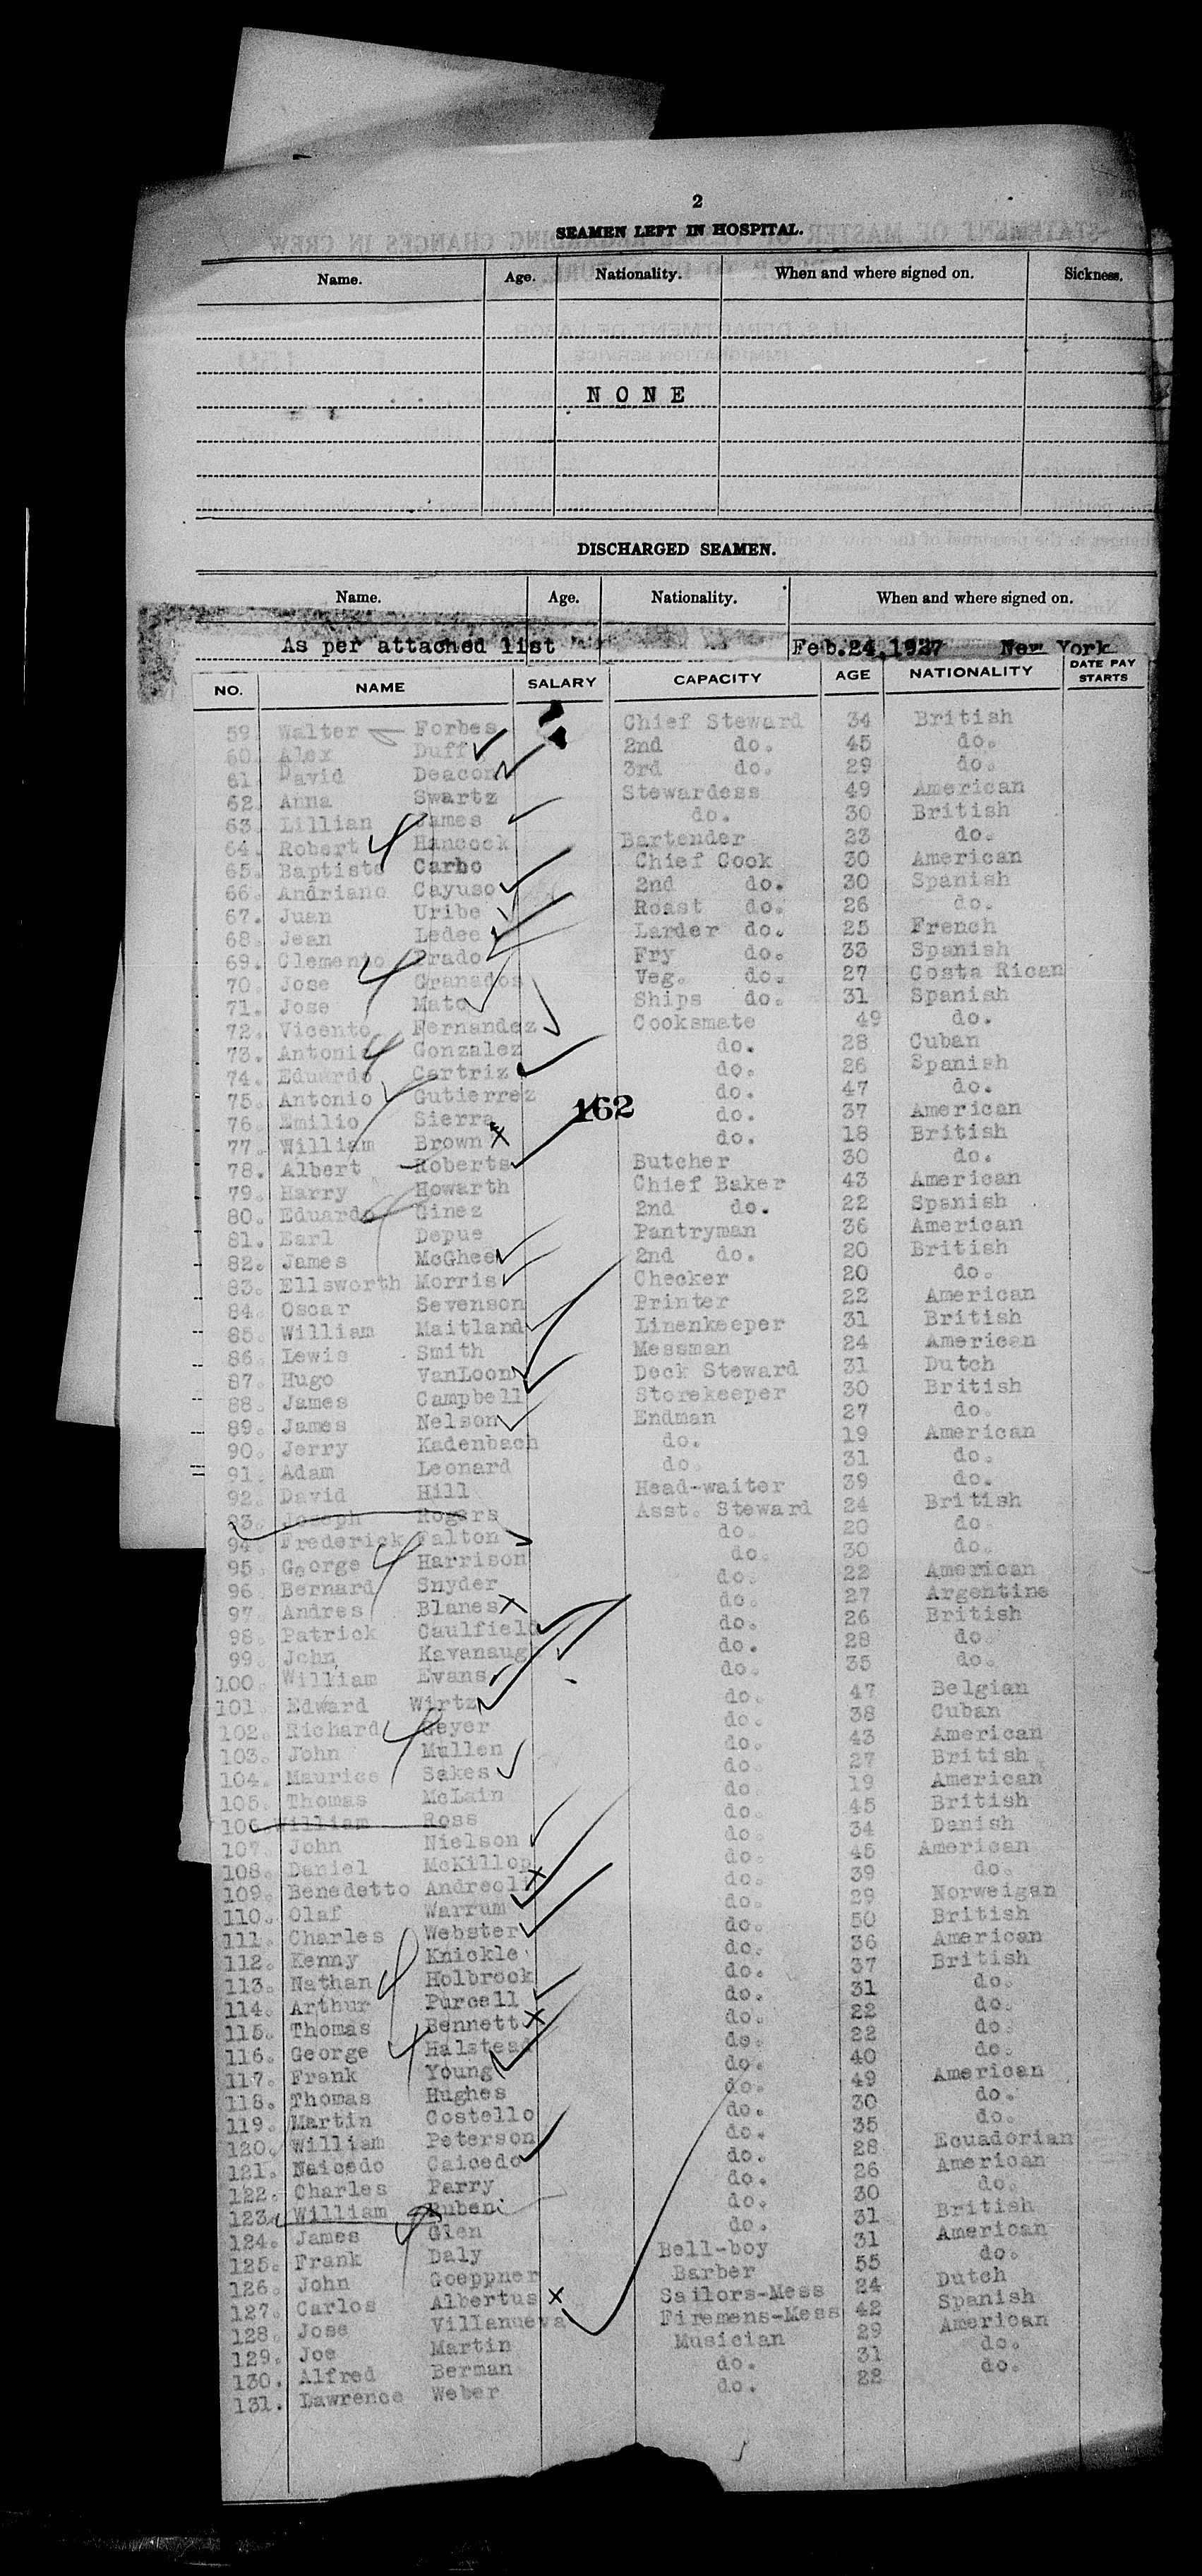 2
SEAMEN LEFT IN HOSPITAL.
Name. Age. Nationality. When and where signed on. Sickness.
N O N E
DISCHARGED SEAMEN.
Name. Age. Nationality. When and where signed on.
As per attached list Feb.24,1927 New York
NO. NAME SALARY CAPACITY AGE NATIONALITY DATE PAY STARTS
59. Walter Forbes Chief Steward 34 British
60. Alex Duff 2nd do. 45 do.
61. David Deacon 3rd do. 29 do.
62. Anna Swartz Stewardess 49 American
63. Lillian James do. 30 British
64. Robert Hancock Bartender 23 do.
65. Baptisto Carbo Chief Cook 30 American
66. Andriano Cayuso 2nd do. 30 Spanish
67. Juan Uribe Roast do. 26 do.
68. Jean Ledee Larder do. 25 French
69. Clemento Prado Fry do. 33 Spanish
70. Jose Granados Veg. do. 27 Costa Rican
71. Jose Mato Ships do. 31 Spanish
72. Vicento Fernandez Cooksmate 49 do.
73. Antonio Gonzalez do. 28 Cuban
74. Eduardo Cartriz do. 26 Spanish
75. Antonio Gutierrez do. 47 do.
76. Emilio Sierra do. 37 American
77. William Brown do. 18 British
162
78. Albert Roberts Butcher 30 do.
79. Harry Howarth Chief Baker 43 American
80. Eduardo Ginez 2nd do. 22 Spanish
81. Earl Depue Pantryman 36 American
82. James McGhee 2nd do. 20 British
83. Ellsworth Morris Checker 20 do.
84. Oscar Sevenson Printer 22 American
85. William Maitland Linenkeeper 31 British
86. Lewis Smith Messman 24 American
87. Hugo VanLoon Deck Steward 31 Dutch
88. James Campbell Storekeeper 30 British
89. James Nelson Endman 27 do.
90. Jerry Kadenbach do. 19 American
91. Adam Leonard do. 31 do.
92. David Hill Head-waiter 39 do.
93. Joseph Rogers Asst. Steward 24 British
94. Frederick Falton do. 20 do.
95. George Harrison do. 30 do.
96. Bernard Snyder do. 22 American
97. Andres Blanes do. 27 Argentine
98. Patrick Caulfield do. 26 British
99. John Kavanaugh do. 28 do.
100. William Evans do. 35 do.
101. Edward Wirtz do. 47 Belgian
102. Richard Geyer do. 38 Cuban
103. John Mullen do. 43 American
104. Maurice Sakes do. 27 British
105. Thomas McLain do. 19 American
106. William Ross do. 45 British
107. John Nielson do. 34 Danish
108. Daniel McKillop do. 45 American
109. Benedetto Andreoli do. 39 do.
110. Olaf Warrum do. 29 Norweigan
111. Charles Webster do. 50 British
112. Kenny Knickle do. 36 American
113. Nathan Holbrook do. 37 British
114. Arthur Purcell do. 31 do.
115. Thomas Bennett do. 22 do.
116. George Halstead do. 22 do.
117. Frank Young do. 40 do.
118. Thomas Hughes do. 49 American
119. Martin Costello do. 30 do.
120. William Peterson do. 35 do.
121. Naicedo Caicedo do. 28 Ecuadorian
122. Charles Parry do. 26 American
123. William Ruben do. 30 do.
124. James Glen do. 31 British
125. Frank Daly Bell-boy 31 American
126. John Goeppner Barber 55 do.
127. Carlos Albertus Sailors-Mess 24 Dutch
128. Jose Villanueva Firemens-Mess 42 Spanish
129. Joe Martin Musician 29 American
130. Alfred Berman do. 31 do.
131. Lawrence Weber do. 22 do.